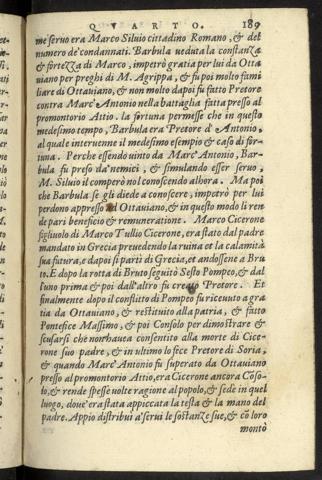 QVARTO. 189
me seruo era Marco Siluio cittadino Romano, & del
numero de'condannati. Barbula ueduta la constanza
& fortezza di Marco, impetrò gratia per lui da Otta
uiano per preghi di M. Agrippa, & fu poi molto fami
liare di Ottauiano, & non molto dapoi fu fatto Pretore
contra Marc'Antonio nella battaglia fatta presso al
promontorio Attio. la fortuna permesse che in questo
medesimo tempo, Barbula era Pretore d'Antonio,
al quale interuenne il medesimo esempio & caso di for-
tuna. Perche essendo uinto da Marc'Antonio, Bar-
bula fu preso da'nemici, & simulando esser seruo,
M. Siluio il comperò nol conoscendo alhora. Ma poi
che Barbula se gli diede a conoscere, impetrò per lui
perdono appresso ad Ottauiano, & in questo modo li ren
de pari beneficio & remuneratione. Marco Cicerone
figliuolo di Marco Tullio Cicerone, era stato dal padre
mandato in Grecia preuedendo la ruina et la calamità
sua futura, e dapoi si partì di Grecia, et andossene a Bru
to. E dopo la rotta di Bruto seguitò Sesto Pompeo, & dal
l'uno prima & poi dall'altro fu creato Pretore. Et
finalmente dopo il conflitto di Pompeo fu riceuuto a gra
tia da Ottauiano, & restituito alla patria, & fatto
Pontefice Massimo, & poi Consolo per dimostrare &
scusarsi che non haueua consentito alla morte di Cice-
rone suo padre, & in ultimo lo fece Pretore di Soria,
& quando Marc'Antonio fu superato da Ottauiano
presso al promontorio Attio, era Cicerone ancora Conso-
lo, & rende spesse uolte ragione al popolo, & sede in quel
luogo, doue era stata appiccata la testa & la mano del
padre. Appio distribuì a'serui le sostanze sue, & cō loro
montò